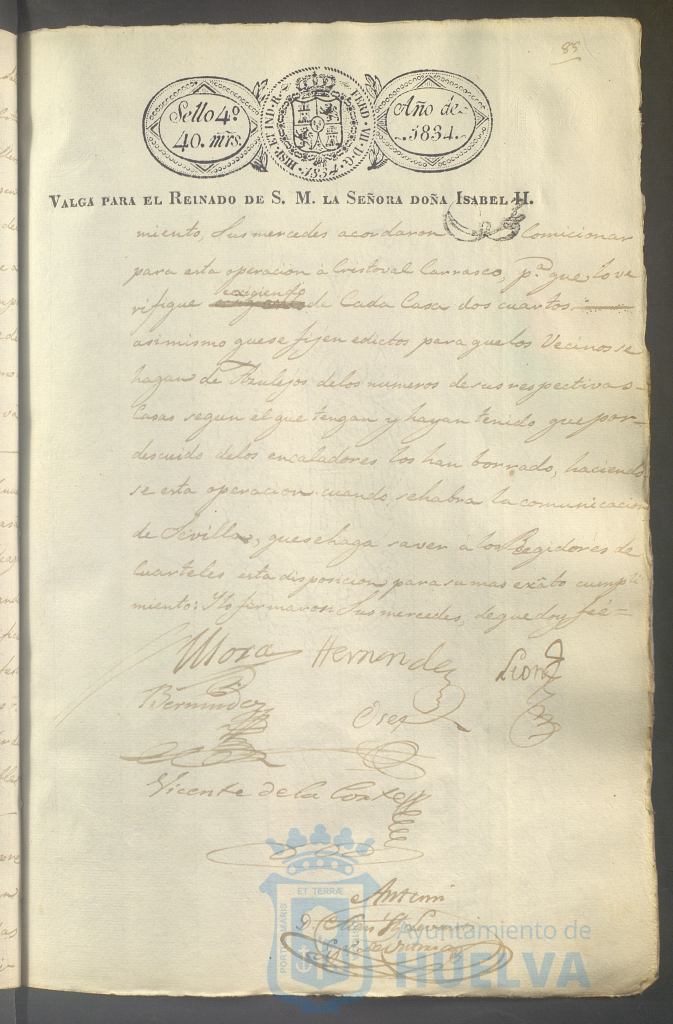 88
Sello 4º
40. mrs.
HISP. ET IND. R. FERD. VII. D. G. 1834.
Año de
1834.
VALGA PARA EL REINADO DE S. M. LA SEÑORA DOÑA ISABEL II.
miento, sus mercedes acordaron Comicionar
para esta operacion á Cristoval Carrasco, pª. que lo ve
rifique exigiendo de Cada Casa dos cuartos:
asimismo que se fijen edictos para que los Vecinos se
hagan de Azulejos de los numeros de sus respectivas
Casas segun el que tengan y hayan tenido que por
descuido de los encaladores los han borrado, haciendo
se esta operacion cuando se habra la comunicacion
de Sevilla, que se haga saver á los Regidores de
Cuarteles esta disposicion para su mas exâto cumpli
miento: Y lo firmaron sus mercedes, de que doy feé
Mora Hernande León
Bermudez
Vicente de la Corte
Antemi
PORTUS MARIS ET TERRÆ
Ayuntamiento de
HUELVA